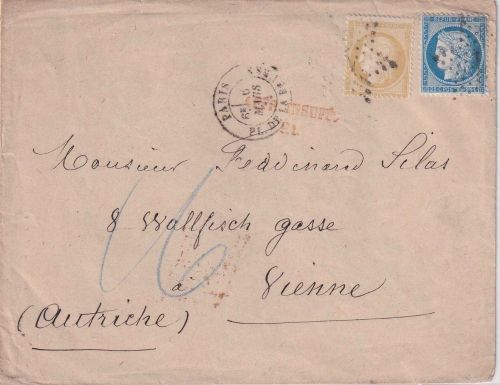 REPUB. FRANC.
PARIS
6
MARS
PL. DE LA BOURSE
Monsieur Ferdinand Silas
8 Wallfisch gasse
à Vienne
(Autriche)